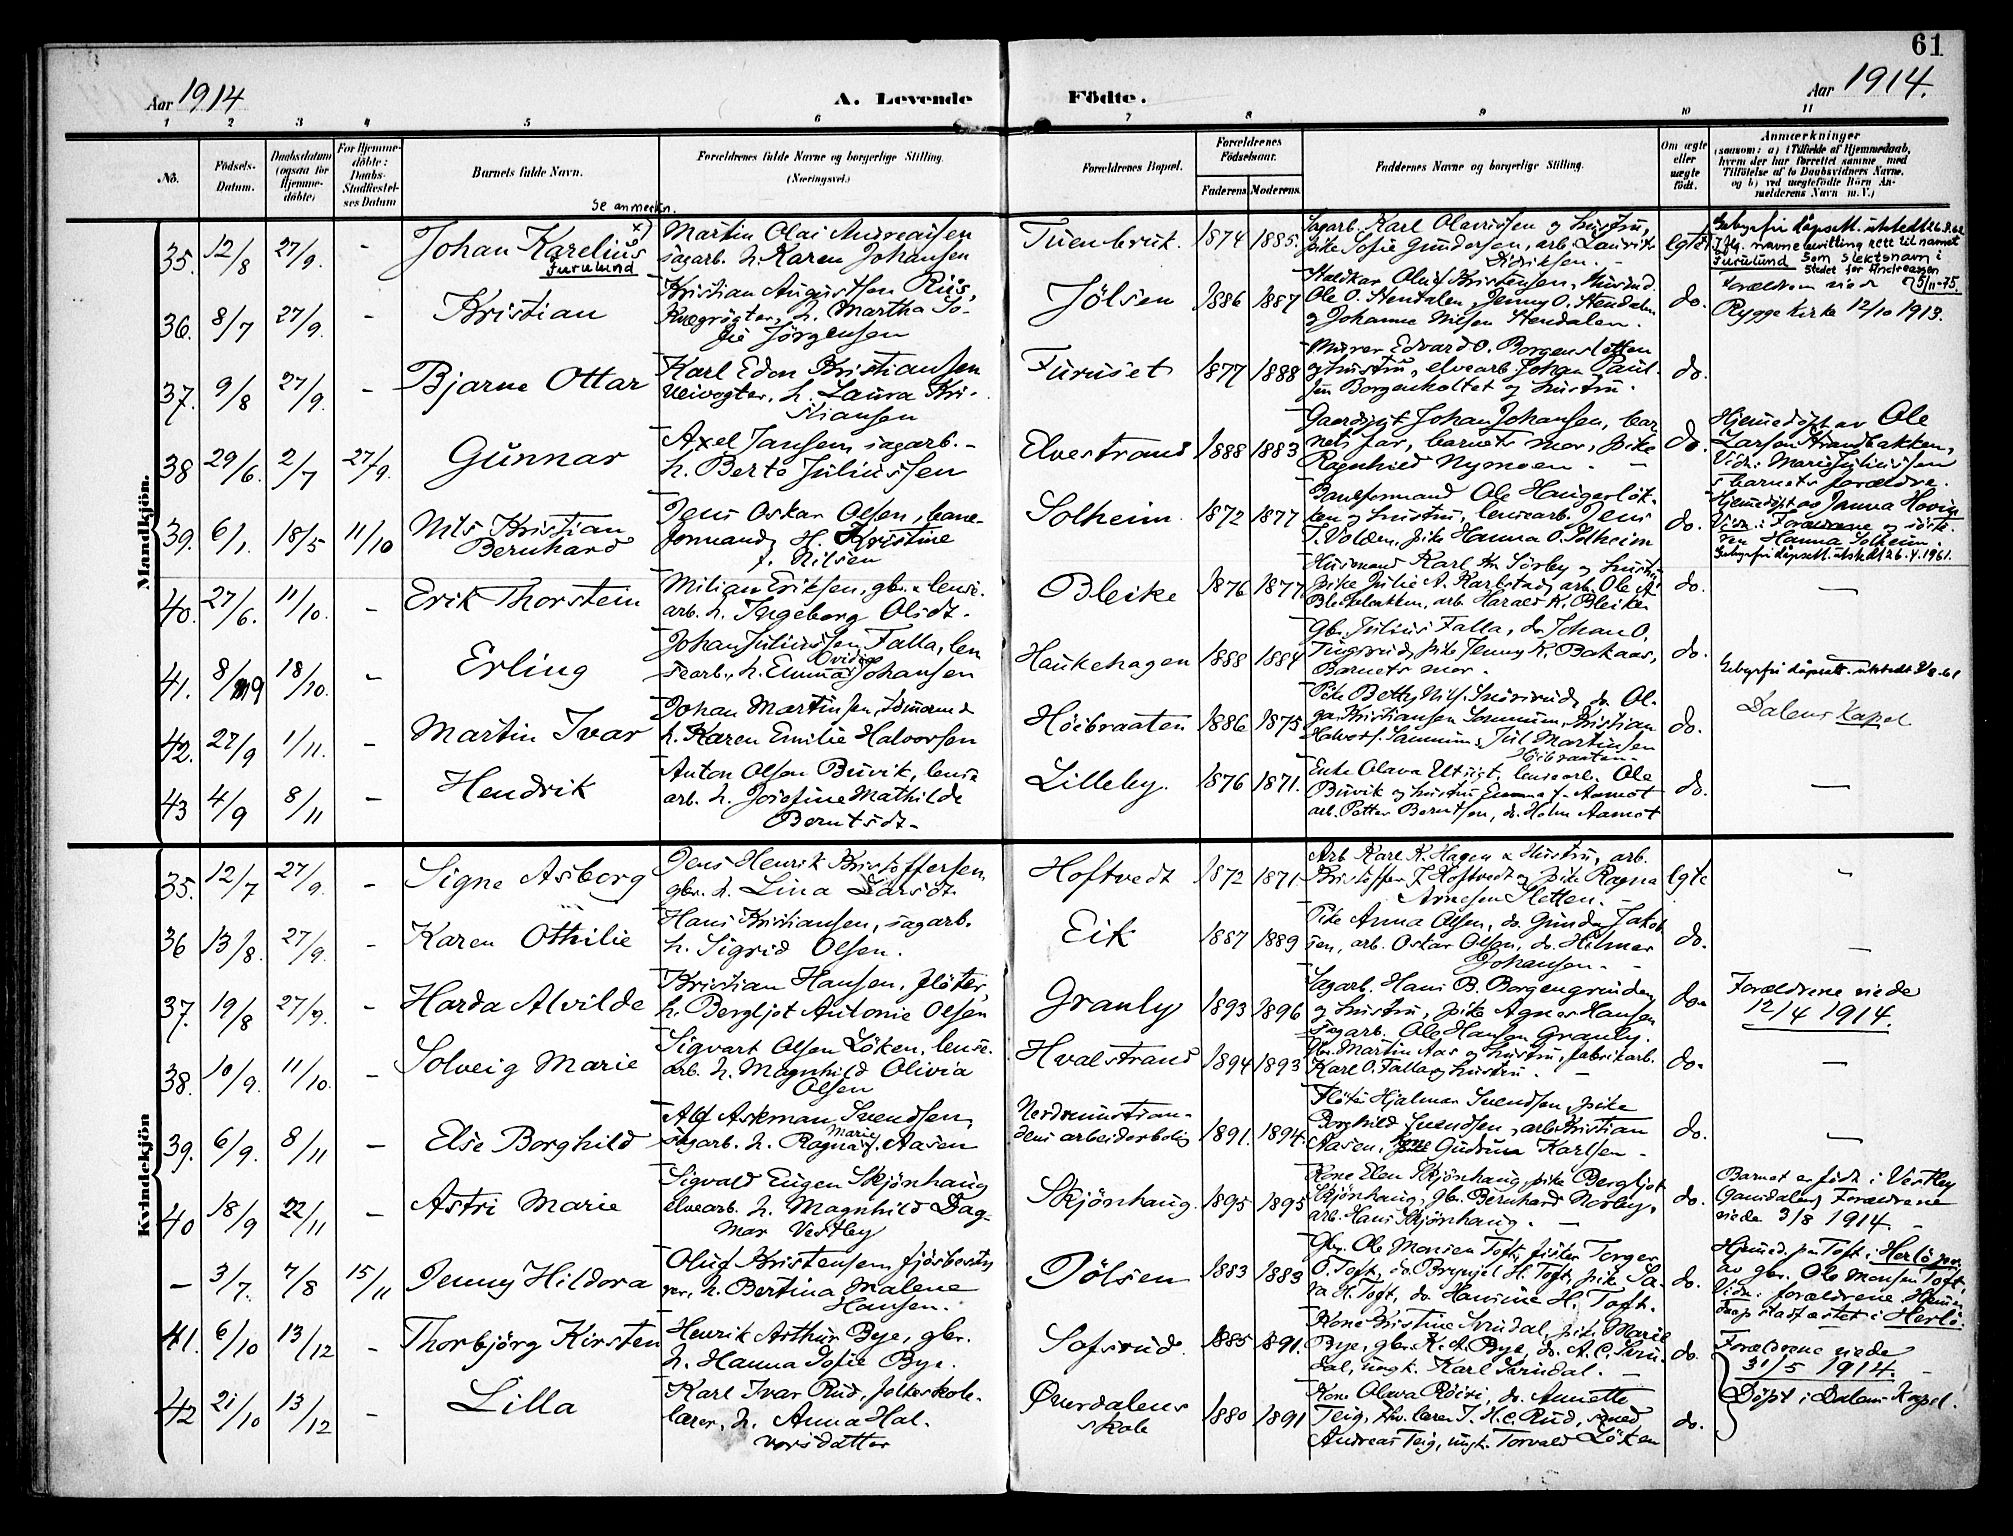 61
Aar 1914
A. Levende
Födte.
Aar 1914.
1 2 3 4 5 6 7 8 9 10 11
No.
Födsels-Datum.
Daabsdatum (ogsaa for Hjemme-döbte)
For Hjemme-döbte: Daabs-Stadfæstel-ses Datum
Barnets fulde Navn.
Forældrenes fulde Navne og borgerlige Stilling.
(Næringsvei.)
Forældrenes Bopæl.
Forældrenes Födselsaar.
Faderens. Moderens.
Faddernes Navne og borgerlige Stilling.
Om ægte eller uægte födt.
Anmærkninger
(saasom: a) i Tilfælde af Hjemmedaab,
hvem der har forrettet samme, med
Tilföielse af to Daabsvidners Navne,
og b) ved uægtefödte Börn An-
melderens Navn m. V.)
Mandkjön.
se anmerkn.
35. 12/8 27/9. - Johan Karelius x)
Furulund
Martin Olai Andreassen
sagarb. h. Karen Johansen
1874 1885.
Sagarb. Karl Olavissen og hustru,
pike Sofie Gundersen, arb. Laurits
Didriksen. -
Gebyrfri dåpsatt. utstedt
Iflg. navnebevilling rett til navnet
Furulund som slektsnavn i
stedet for Andreassen
36. 8/7 27/9. - Kristian
Kristian Augustsen Riis,
h. Martha So-
fie Jörgensen
Jölsen 1886 1887
Ole O. Hendalen, Jenny O. Hendalen
og Johanne Nilsen Hendalen.
do.
Rygge Kirke 12/10 1913.
37. 9/8 27/9. - Bjarne Ottar
Karl Edon Kristiansen
Veivogter, h. Laura Kri-
stiansen
Furuset 1877 1888
Murer Edvard O. Borgensletten
og hustru, elvearb. Johan Paul-
sen Borgenholtet og hustru.
do.
38 29/6. 2/7 27/9. Gunnar
Axel Jansen, sagarb. -
h. Berte Juliussen
Elvestrand 1888 1883
Gaardsgt. Johan Johansen, bar-
nets far, barnets mor, pike
Ragnhild Nymoen. -
do.
Hjemmedöpt av Ole
Larsen Strandbakken,
Vidn: Marie Juliussen
& barnets forældre.
39. 6/1. 18/5 11/10 Nils Kristian
Bernhard
Jens Oskar Olsen, bane-
formand, H. Kristine
f. Nilsen
Solheim. 1872 1877
Baneformand Ole Haugerlök-
ken og hustru, lensearb. Jens
T. Volden, pike Hanna O. Solheim
do.
Hjemmedöpt av Janna Hovin
Vidn: Forældrene og söste-
ren Hanna Solheim.
Gebyrfri dåpsatt. utstedt 26.4.1961.
40. 27/6. 11/10. - Erik Thorstein
Milian Eriksen, gbr. & lense-
arb. h. Ingeborg Olsdt.
Bleike 1876 1877
Husmand Karl Kr. Sörby og hustru
pike Julie A. Karlstad, arb. Ole A.
Bleikebakken, arb. Harald K. Bleike
do. -
41. 8/9 18/10. - Erling
Johan Juliussen Falla, len-
searb., h. Emma Ovidia Johansen
Haukehagen 1888 1884
Gbr. Julius Falla, do Johan O.
Tingsrud, pike Jenny K. Bakaas,
Barnets mor.
do.
Gebyrfri dåpsatt. utstedt
42. 27/9 1/11. - Martin Ivar
Johan Martinsen, tömmermand
h. Karen Emilie Halvorsen
Höibraaten 1886 1875
Pike Betty Nils. Snörsrud, do. Ol-
ga Kristiansen Sammum, Kristian
Halvors. Sammum, Jul Martinsen
Höibraaten.
do.
Dalens Kapel
43 4/9 8/11 - Hendrik
Anton Olsen Buvik, lense-
arb. h. Josefine Mathilde
Berntsdt.
Lilleby. 1876 1871.
Enke Olava Utsigt, lensearb. Ole
Buvik og hustru Emma f. Aamot
arb. Petter Berntsen, do. Holm Aamot
do. -
Kvindekjön
35. 12/7 27/9. - Signe Asborg
Jens Henrik Kristoffersen,
gbr. h. Lina Larsdt.
Hoftvedt 1872 1871
Arb Karl K. Hagen & Hustru, arb.
Kristoffer J. Hoftvedt og pike Ragna
Arnesen Sletten.
egte -
36 13/8. 27/9. - Karen Othilie
Hans Kristiansen, sagarb.
h. Sigrid Olsen.
Eik 1887 1889
Pike Anna Olsen, do. Gunda Jakob
sen, arb. Oskar Olsen, do. Hilmar
Johansen. -
do. -
37. 19/8 27/9. - Harda Alvilde
Kristian Hansen, flöter,
h. Bergljot Antonie Olsen
Granly 1893 1896
Sagarb. Hans B. Borgengrinden
og hustru, pike Agnes Hansen
sagarb. Ole Hansen Granly.
do.
Forældrene viede
12/4 1914.
38. 10/9. 11/10. - Solveig Marie
Sigvart Olsen Löken, lense-
arb. h. Magnhild Olivia
Olsen
Hvalstrand 1894 1893
Gbr. Martin Aas og hustru, fabrikarb.
Karl O. Falla og hustru. -
do. -
39. 6/9. 8/11 - Else Borghild
Alf Askman Svendsen,
sagarb. h. Ragna Marie f. Aasen
Nordmunstran-
dens arbeiderbolig 1891. 1894.
Flöter Hjalmar Svendsen, pike
Borghild Svendsen, arb. Kristian
Aasen, kone Gudrun Karlsen -
do. -
40 18/9 22/11 - Astri Marie
Sigvald Eugen Skjönhaug
elvearb. h. Magnhild Dag-
mar Vestby
Skjönhaug. 1895 1895
Kone Elen Skjönhaug, pike Bergljot
Skjönhaug, gbr. Bernhard Norby,
arb. Hans Skjönhaug. -
do.
Barnet er födt i Vestby
Forældrene
viede 3/8 1914. -
- 3/7. 7/8 15/11 Jenny Hildora
Oluf Kristensen, fjösbesty-
rer, h. Bertina Malene
Hansen.
Jölsen 1883 1883
Gbr. Ole Monsen Toft, fisker Torger
O. Toft, do. Brynjel H. Toft, pike Sa-
ra H. Toft, do. Hansine H. Toft.
do.
Hjemmed. paa Toft i Herlö pgj.
av gbr. Ole Monsen Toft,
Vidn: forældrene Hjemme-
daap stadfæstet i Herlö.
41. 6/10 13/12 - Thorbjörg Kirsten
Henrik Arthur Bye, gbr.
h. Hanna Sofie Bye.
Sofsrud. 1885 1891.
Kone Kristine Svindal, pike Marie
Bye, gbr. K. A. Bye, do. A. C. Svin-
dal, ungk. Karl Svindal. -
do.
Forældrene viede
31/5 1914. -
42 21/10 13/12 - Lilla
Karl Ivar Rud, folkeskole-
lærer, h. Anna Hal-
vorsdatter
Överdalens
skole 1880 1891
Kone Olava Röisi, do. Annette
Teig, fhv. lærer J. H. C. Rud, smed
Andreas Teig, ungk. Torvald Löken
do.
Döpt i Dalen Kapel.